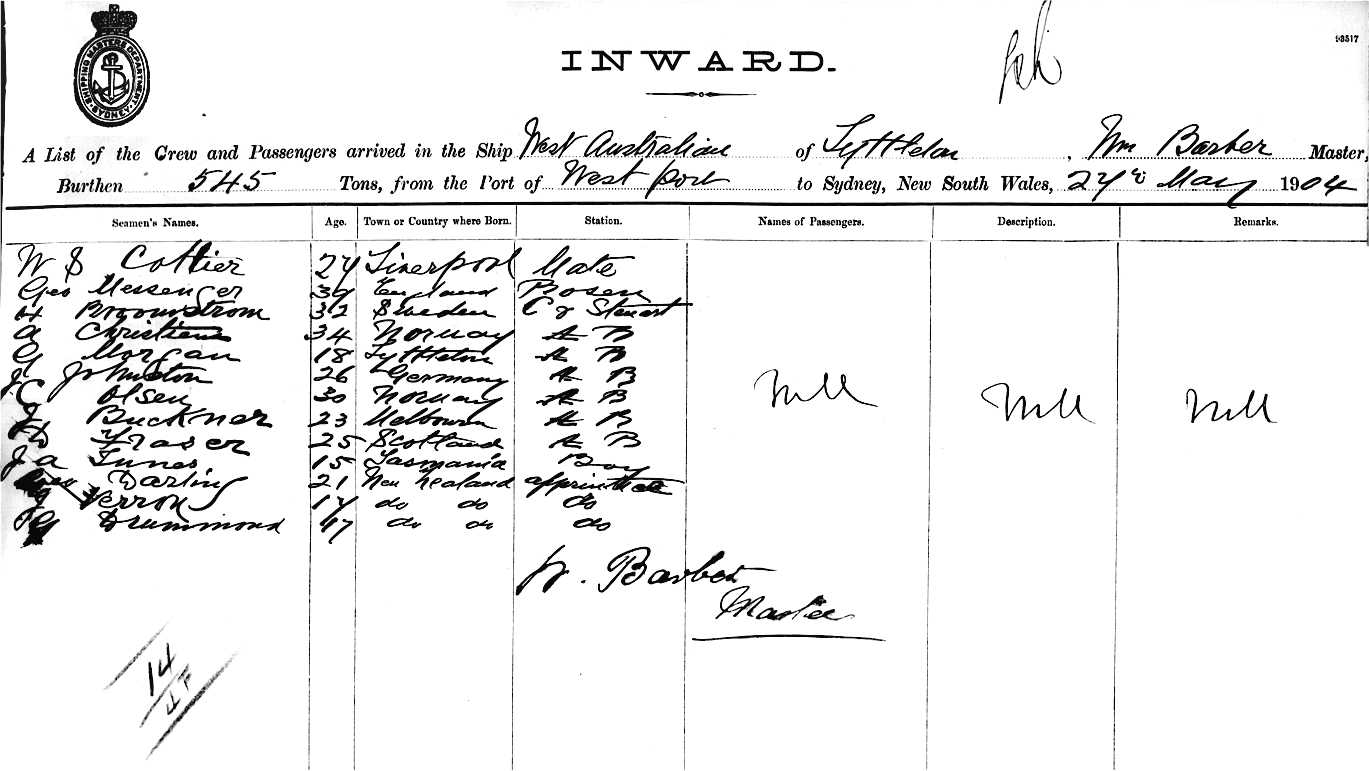 SHIPPING MASTERS DEPARTMENT SYDNEY
93517
INWARD.
A List of the Crew and Passengers arrived in the Ship West Australian of Lyttleton, Wm Barber Master,
Burthen 545 Tons, from the Port of West port to Sydney, New South Wales, May 1904
Seamen's Names. Age. Town or Country where Born. Station. Names of Passengers. Description. Remarks.
W S Collier Liverpool Mate
Geo Messenger England Bosen
H Broomstrom 32 Sweden C & Stewart
A 34 Norway A B
G Morgan 18 Lyttleton A B
J Johnston 26 Germany A B
C Olsen 30 Norway A B
Buckner 23 Melbourn A B
D Fraser 25 Scotland A B
J A Innes 15 Tasmania Boy
Geo Darling 21 New Zealand
do do do
G Drummond 17 do do do
Nill Nill Nill
W. Barber
Master
14